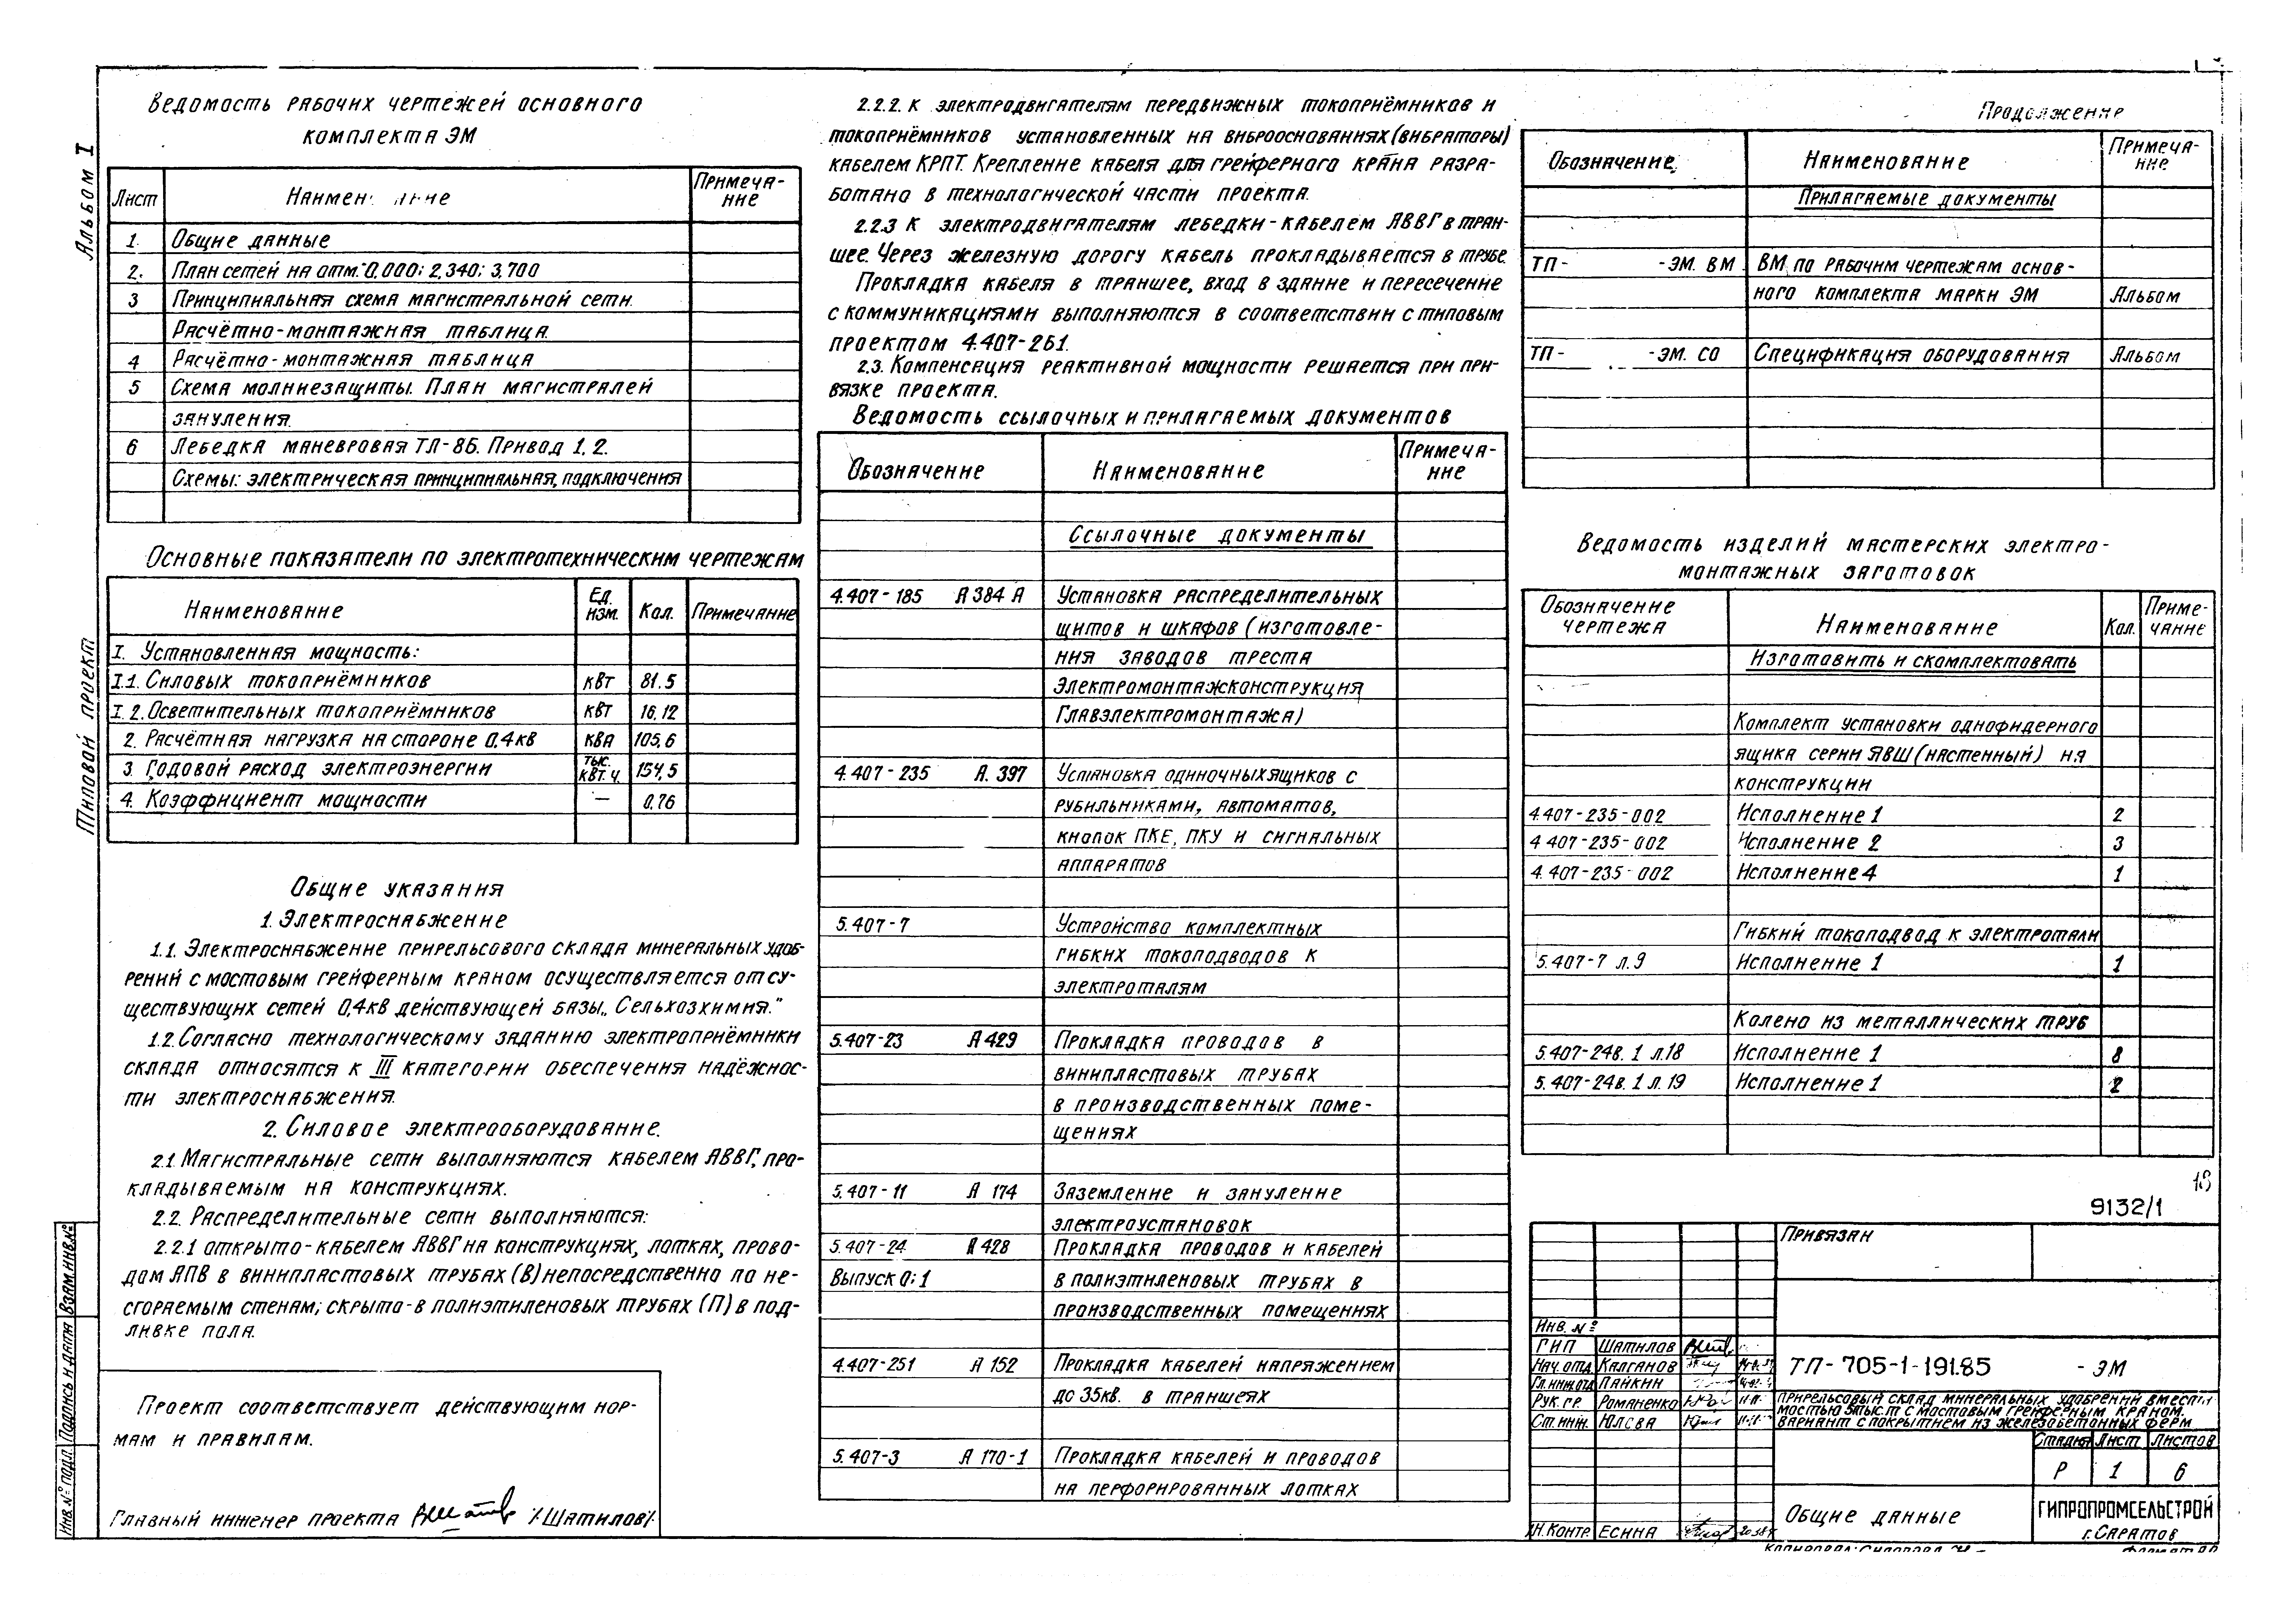 Альбом I
Типовой проект
Ведомость рабочих чертежей основного
комплекта ЭМ
Лист
Примеча-
ние
1. Общие данные
2. План сетей на отм. 0,000; 2,340; 3,700
3 Принципиальная схема магистральной сети.
Расчётно-монтажная таблица.
4 Расчётно-монтажная таблица
5 Схема молниезащиты. План магистралей
зануления.
6 Лебедка маневровая ТЛ-8Б. Привод 1, 2.
Схемы: электрическая принципиальная, подключения
Основные показатели по электротехническим чертежам
Наименование Ед. изм. Кол. Примечание
I. Установленная мощность:
I.1. Силовых токоприёмников кВт 81.5
I.2. Осветительных токоприёмников кВт 16,12
2. Расчётная нагрузка на стороне 0,4кв кВа 105,6
3. Годовой расход электроэнергии тыс. кВт.ч. 154,5
4. Коэффициент мощности — 0,76
Общие указания
1. Электроснабжение
1.1. Электроснабжение прирельсового склада минеральных удоб-
рений с мостовым грейферным краном осуществляется от су-
ществующих сетей 0,4кв действующей базы „Сельхозхимия."
1.2. Согласно технологическому заданию электроприёмники
склада относятся к III категории обеспечения надёжнос-
ти электроснабжения.
2. Силовое электрооборудование.
2.1. Магистральные сети выполняются кабелем АВВГ, про-
кладываемым на конструкциях.
2.2. Распределительные сети выполняются:
2.2.1 открыто-кабелем АВВГ на конструкциях, лотках, прово-
дом АПВ в винипластовых трубах (В) непосредственно по не-
сгораемым стенам; скрыто-в полиэтиленовых трубах (П) в под-
ливке пола.
Проект соответствует действующим нор-
мам и правилам.
Главный инженер проекта /Шатилов/.
Взам. инв. №
Подпись и дата
Инв. № подл.
2.2.2. К электродвигателям передвижных токоприёмников и
токоприёмников установленных на виброоснованиях (вибраторы)
кабелем КРПТ. Крепление кабеля для грейферного крана разра-
ботано в технологической части проекта.
2.2.3 К электродвигателям лебедки-кабелем АВВГ в тран-
шее. Через железную дорогу кабель прокладывается в трубе.
Прокладка кабеля в траншее, вход в здание и пересечение
с коммуникациями выполняются в соответствии с типовым
проектом 4.407-251.
2.3. Компенсация реактивной мощности решается при при-
вязке проекта.
Ведомость ссылочных и прилагаемых документов
Обозначение Наименование Примеча-
ние
Ссылочные документы
4.407-185 А 384 А Установка распределительных
щитов и шкафов (изготовле-
ния заводов треста
Электромонтажконструкция
Главэлектромонтажа)
4.407-235 А. 397 Установка одиночных ящиков с
рубильниками, автоматов,
кнопок ПКЕ, ПКУ и сигнальных
аппаратов
5.407-7 Устройство комплектных
гибких токоподводов к
электроталям
5.407-23 А 429 Прокладка проводов в
винипластовых трубах
в производственных поме-
щениях
5.407-11 А 174 Заземление и зануление
электроустановок
5.407-24 А 428 Прокладка проводов и кабелей
Выпуск 0; 1 в полиэтиленовых трубах в
производственных помещениях
4.407-251 А 152 Прокладка кабелей напряжением
до 35кв. в траншеях
5.407-3 А 170-1 Прокладка кабелей и проводов
на перфорированных лотках
Продолжение
Обозначение Наименование Примеча-
ние
Прилагаемые документы
ТП- -ЭМ. ВМ ВМ по рабочим чертежам основ-
ного комплекта марки ЭМ Альбом
ТП- -ЭМ. СО Спецификация оборудования Альбом
Ведомость изделий мастерских электро-
монтажных заготовок
Обозначение
чертежа Наименование Кол. Приме-
чание
Изготовить и скомплектовать
Комплект установки однофидерного
ящика серии ЯВШ (настенный) на
конструкции
4.407-235-002 Исполнение 1 2
4 407-235-002 Исполнение 2 3
4. 407-235-002 Исполнение 4 1
Гибкий токоподвод к электротали
5.407-7 л.9 Исполнение 1 1
Колено из металлических труб
5.407-24в. 1 л.18 Исполнение 1 8
5.407-24в. 1 л.19 Исполнение 1 2
9132/1
Привязан
Инв. №
ГИП Шатилов
Нач. отд. Калганов
Гл. инж. отд. Пайкин
Рук. гр. Романенко
Ст. инж. Юлова
Н. контр. Есина
ТП-705-1-191.85 -ЭМ
Прирельсовый склад минеральных удобрений вмести-
мостью 5тыс.т с мостовым грейферным краном.
Вариант с покрытием из железобетонных ферм
Стадия Лист Листов
Р 1 6
Общие данные
ГИПРОПРОМСЕЛЬСТРОЙ
г. Саратов